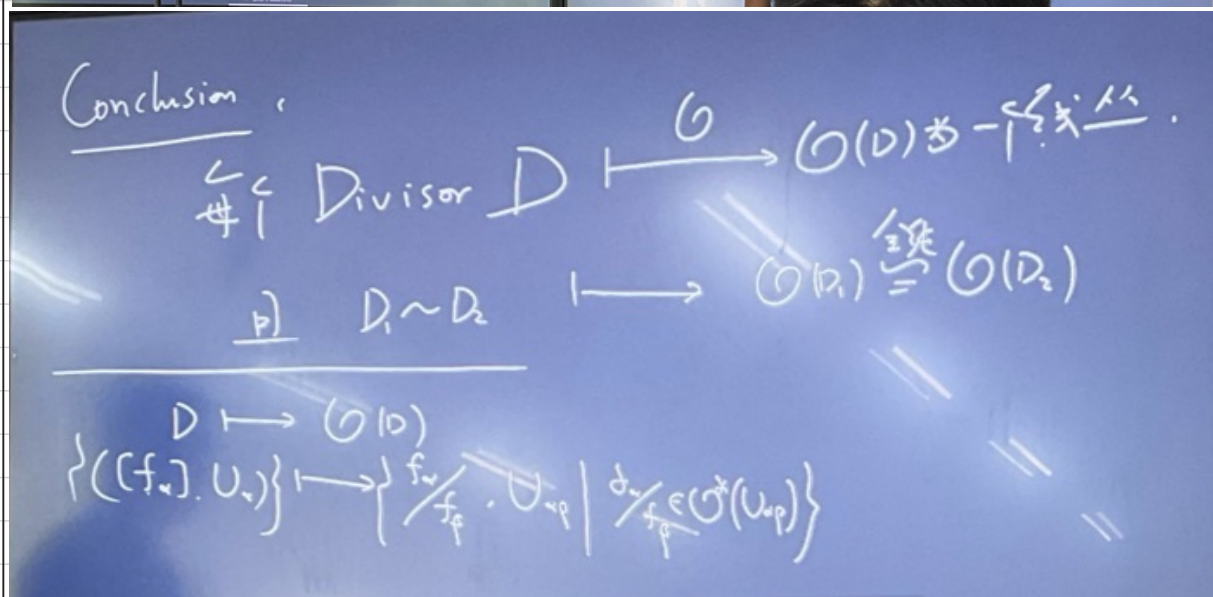 Conclusion.
每个 Divisor D ⟼ O O(D) 为一个线丛.
则 D₁ ~ D₂ ⟼ O(D₁) 全纯 ≅ O(D₂)
D ⟼ O(D)
{([fα], Uα)} ⟼ {fα/fβ, Uαβ | fα/fβ ∈ O*(Uαβ)}